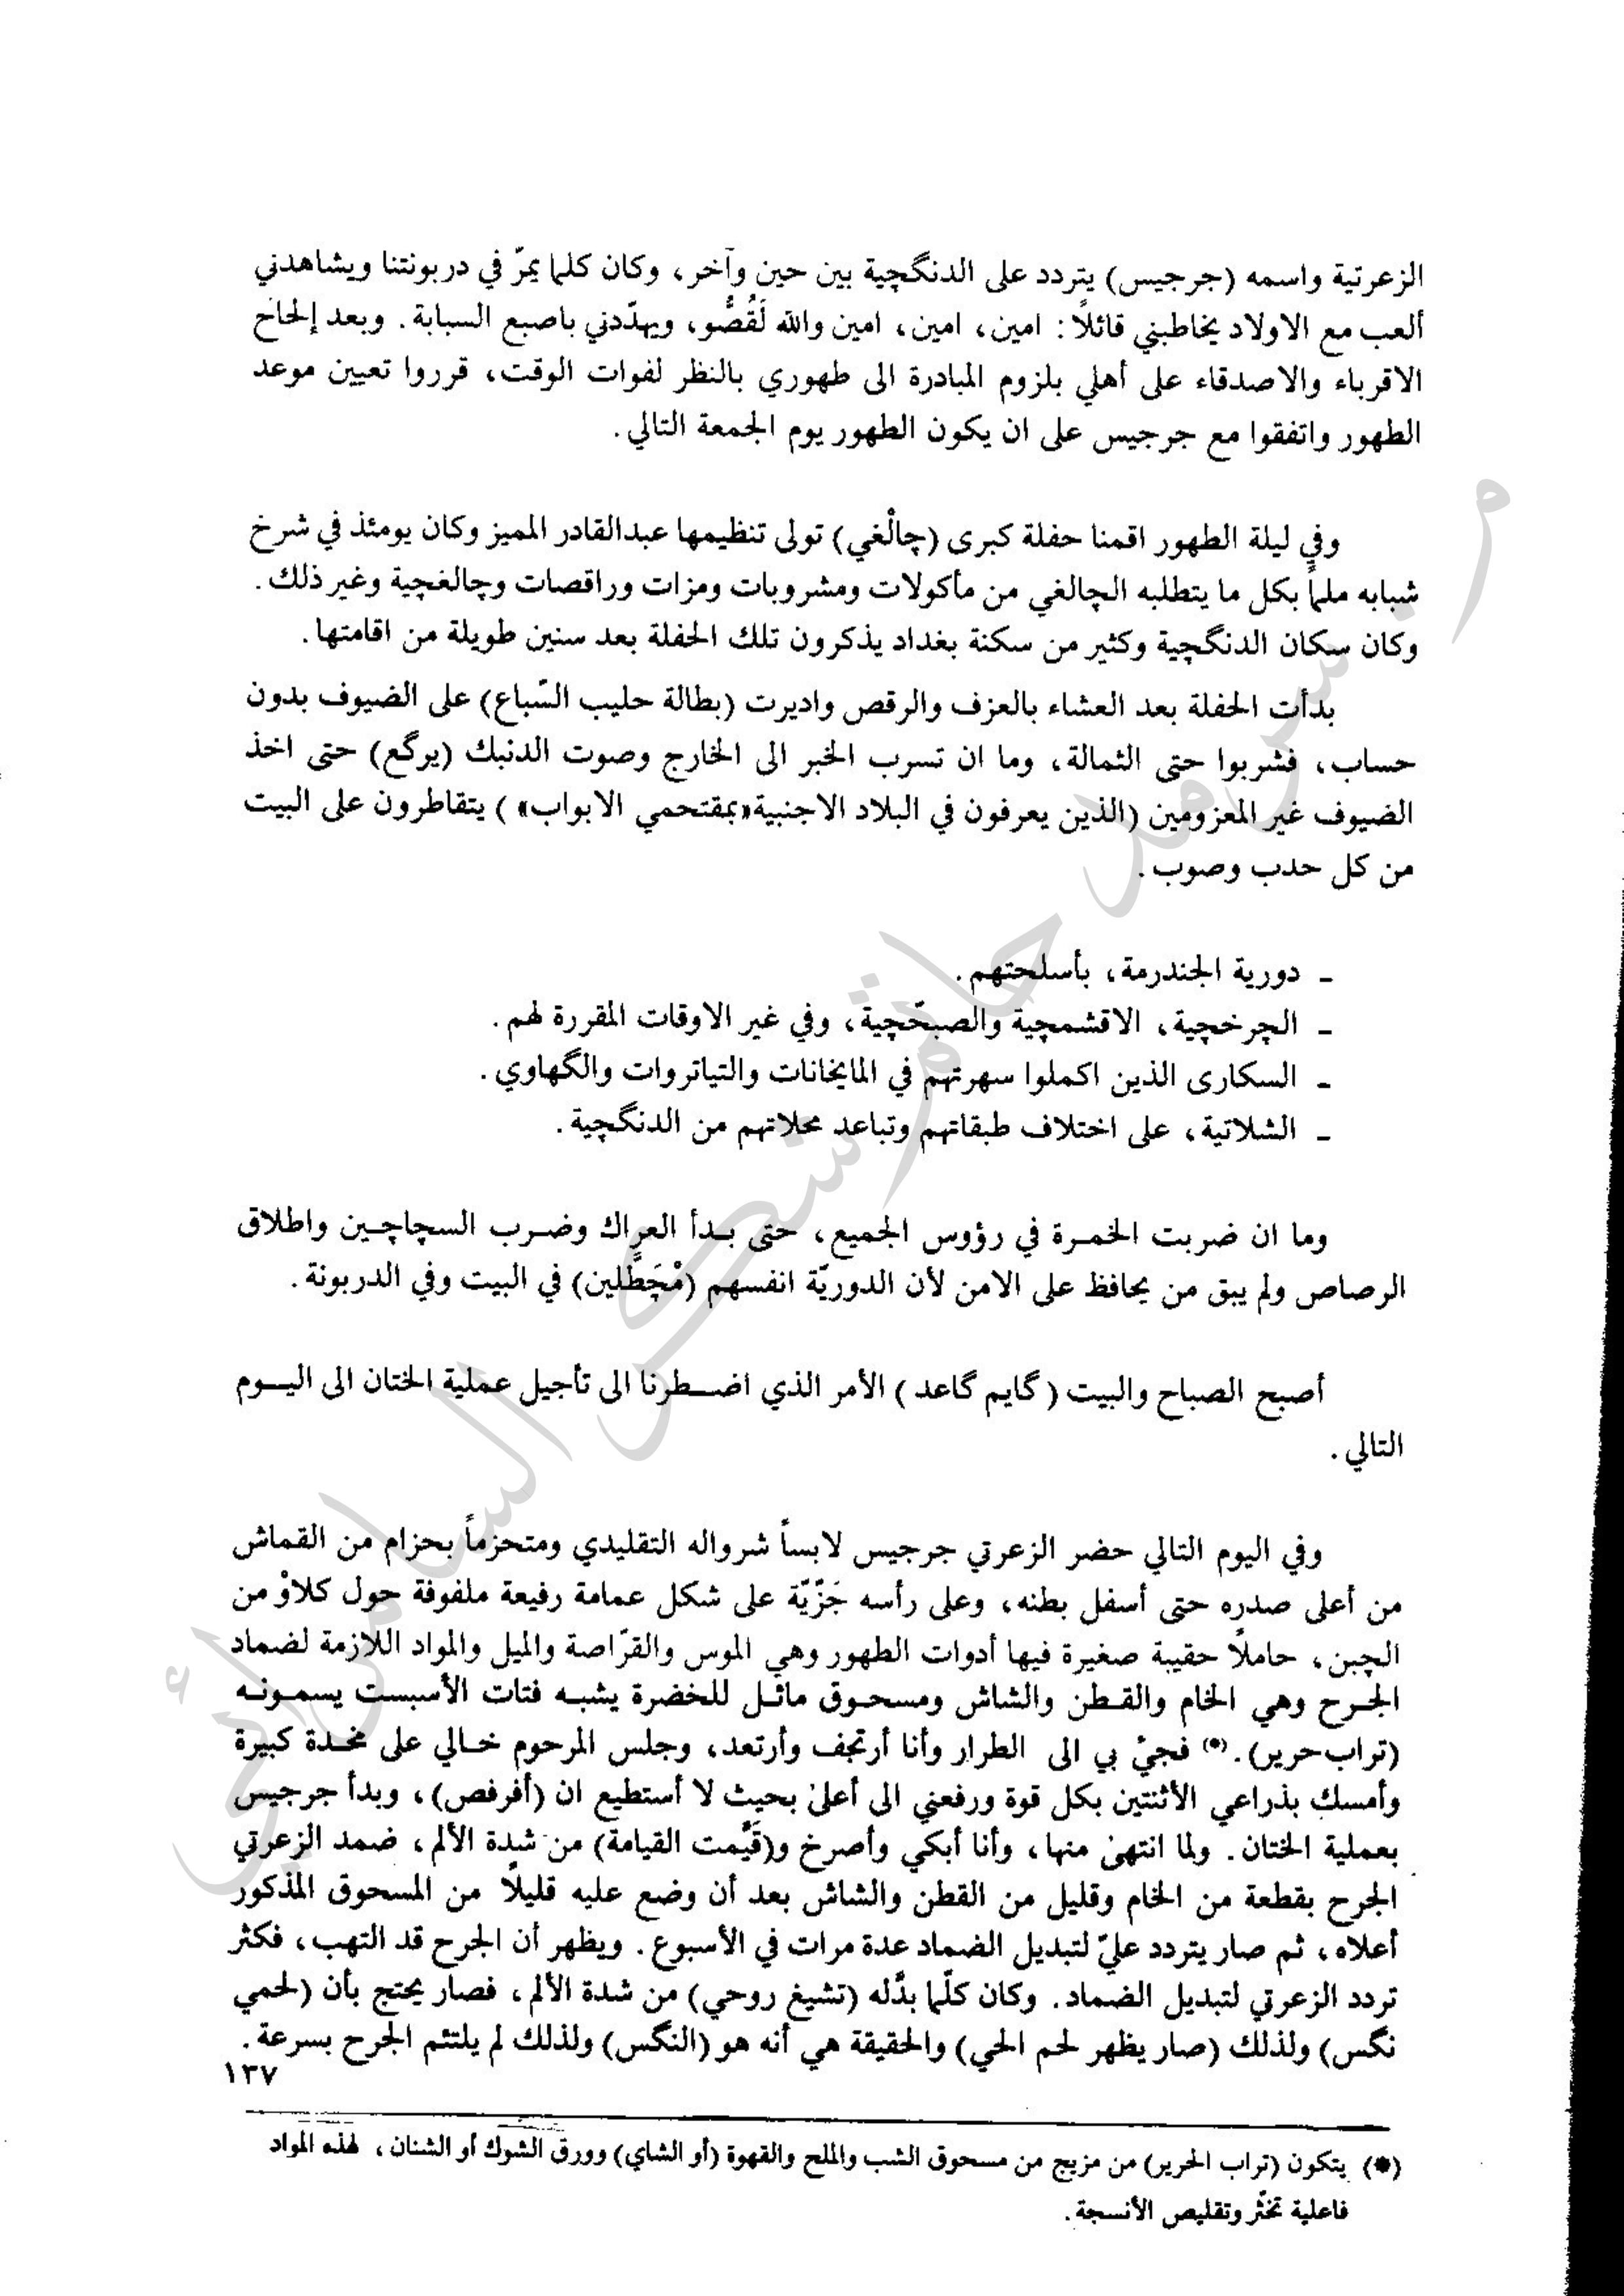 الزعرتية واسمه (جرجيس) يتردد على الدنگچية بين حين وآخر، وكان كلما يمرّ في دربونتنا ويشاهدني
ألعب مع الاولاد يخاطبني قائلاً: امين، امين، امين والله لَقُصُّو، ويهدّدني باصبع السبابة. وبعد إلحاح
الاقرباء والاصدقاء على أهلي بلزوم المبادرة الى طهوري بالنظر لفوات الوقت، قرروا تعيين موعد
الطهور واتفقوا مع جرجيس على ان يكون الطهور يوم الجمعة التالي.
وفي ليلة الطهور اقمنا حفلة كبرى (چالْغي) تولى تنظيمها عبدالقادر المميز وكان يومئذ في شرخ
شبابه ملماً بكل ما يتطلبه الچالغي من مأكولات ومشروبات ومزات وراقصات وچالغچية وغير ذلك.
وكان سكان الدنگچية وكثير من سكنة بغداد يذكرون تلك الحفلة بعد سنين طويلة من اقامتها.
بدأت الحفلة بعد العشاء بالعزف والرقص واديرت (بطالة حليب السّباع) على الضيوف بدون
حساب، فشربوا حتى الثمالة، وما ان تسرب الخبر الى الخارج وصوت الدنبك (يرگع) حتى اخذ
الضيوف غير المعزومين (الذين يعرفون في البلاد الاجنبية «بمقتحمي الابواب») يتقاطرون على البيت
من كل حدب وصوب.
ـ دورية الجندرمة، بأسلحتهم.
ـ الچرخچية، الاقشمچية والصبحّچية، وفي غير الاوقات المقررة لهم.
ـ السكارى الذين اكملوا سهرتهم في المايخانات والتياتروات والگهاوي.
ـ الشلاتية، على اختلاف طبقاتهم وتباعد محلاتهم من الدنگچية.
وما ان ضربت الخمرة في رؤوس الجميع، حتى بدأ العراك وضرب السچاچين واطلاق
الرصاص ولم يبق من يحافظ على الامن لأن الدوريّة انفسهم (مْچَطّلين) في البيت وفي الدربونة.
أصبح الصباح والبيت (گايم گاعد) الأمر الذي اضطرنا الى تأجيل عملية الختان الى اليوم
التالي.
وفي اليوم التالي حضر الزعرتي جرجيس لابساً شرواله التقليدي ومتحزماً بحزام من القماش
من أعلى صدره حتى أسفل بطنه، وعلى رأسه جَزّيّة على شكل عمامة رفيعة ملفوفة حول كلاوْ من
الچبن، حاملاً حقيبة صغيرة فيها أدوات الطهور وهي الموس والقرّاصة والميل والمواد اللازمة لضماد
الجرح وهي الخام والقطن والشاش ومسحوق مائل للخضرة يشبه فتات الأسبست يسمونه
(تراب حرير). (*) فجيْ بي الى الطرار وأنا أرتجف وأرتعد، وجلس المرحوم خالي على مخدة كبيرة
وأمسك بذراعي الأثنتين بكل قوة ورفعني الى أعلى بحيث لا أستطيع ان (أفرفص)، وبدأ جرجيس
بعملية الختان. ولما انتهى منها، وأنا أبكي وأصرخ و(قَيَّمت القيامة) من شدة الألم، ضمد الزعرتي
الجرح بقطعة من الخام وقليل من القطن والشاش بعد أن وضع عليه قليلاً من المسحوق المذكور
أعلاه، ثم صار يتردد عليّ لتبديل الضماد عدة مرات في الأسبوع. ويظهر أن الجرح قد التهب، فكثر
تردد الزعرتي لتبديل الضماد. وكان كلّما بدَّله (تشيغ روحي) من شدة الألم، فصار يحتج بأن (لحمي
نگس) ولذلك (صار يظهر لحم الحي) والحقيقة هي أنه هو (النگس) ولذلك لم يلتئم الجرح بسرعة.
١٣٧
(*) يتكون (تراب الحرير) من مزيج من مسحوق الشب والملح والقهوة (أو الشاي) وورق الشوك أو الشنان، لهذه المواد
فاعلية تخثّر وتقليص الأنسجة.
سرمد حاتم شكر السامرائي